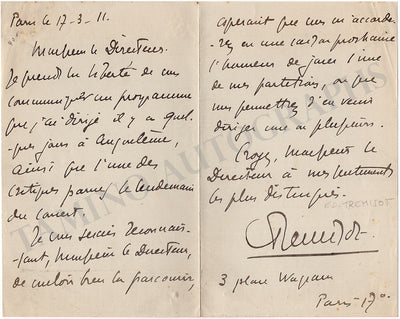 Paris le 17-3-11.
Monsieur le Directeur.
Je prends la liberté de vous
communiquer un programme
que j'ai dirigé il y a quel-
ques jours à Angoulême,
ainsi que l'une des
critiques parues le lendemain
du concert.
Je vous serais reconnais-
sant, Monsieur le Directeur,
de vouloir bien la parcourir,
espérant que vous m'accorde-
rez en une saison prochaine
l'honneur de jouer l'une
de mes partitions, ou que
vous permettrez d'en venir
diriger une ou plusieurs.
Croyez, Monsieur le
Directeur à mes sentiments
les plus distingués.
ED. TREMISOT
3 place Wagram
Paris-17º
TAMINO AUTOGRAPHS